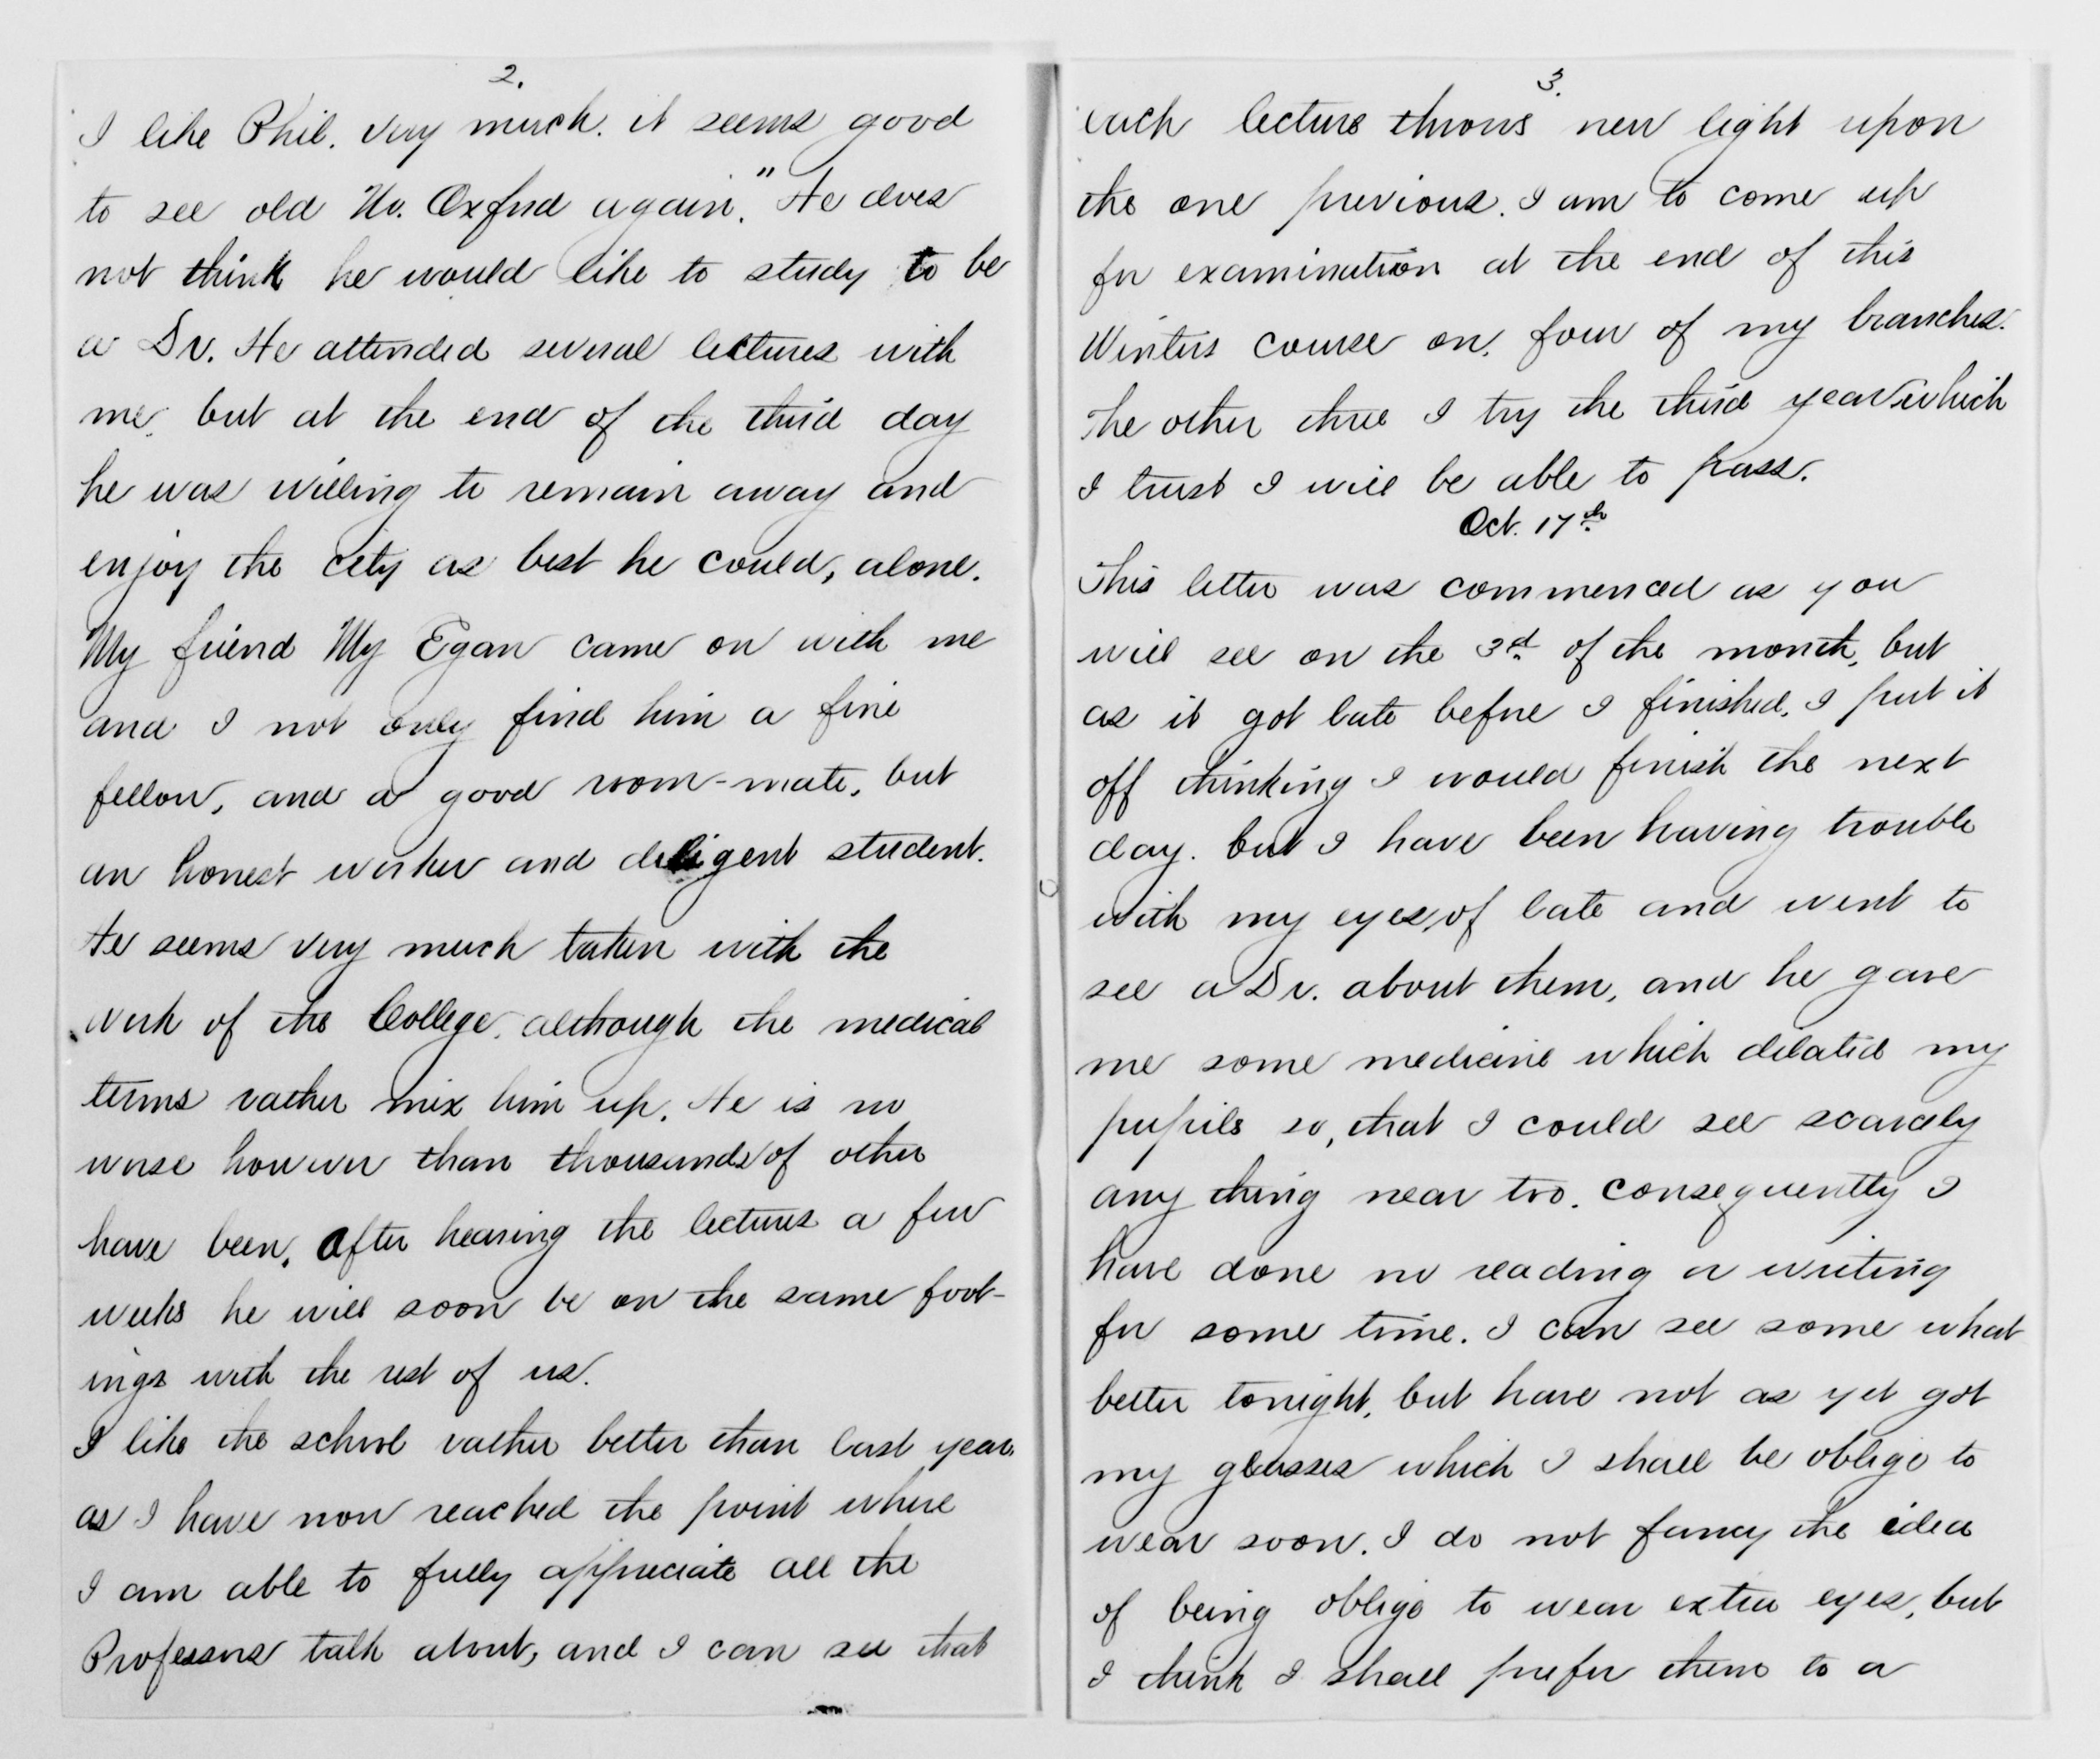 2.
I like Phil. very much. it seems good
to see old No. Oxford again." He does
not think he would like to study to be
a Dr. He attended several lectures with
me. but at the end of the third day
he was willing to remain away and
enjoy the city as best he could, alone.
My friend My Egan came on with me
and I not only find him a fine
fellow, and a good room-mate, but
an honest worker and diligent student.
He seems very much taken with the
work of the College, although the medical
terms rather mix him up. He is no
worse however than thousands of other
have been. After hearing the lectures a few
weeks he will soon be on the same foot-
ings with the rest of us.
I like the school rather better than last year,
as I have now reached the point where
I am able to fully appreciate all the
Professors talk about, and I can see that
3.
each lecture throws new light upon
the one previous. I am to come up
for examination at the end of this
Winters course on, four of my branches.
The other three I try the third year which
I trust I will be able to pass.
Oct. 17th
This letter was commenced as you
will see on the 3d. of the month, but
as it got late before I finished, I put it
off thinking I would finish the next
day. but I have been having trouble
with my eyes, of late and went to
see a Dr. about them, and he gave
me some medicine which dilated my
pupils so, that I could see scarcely
any thing near too. consequently I
have done no reading or writing
for some time. I can see some what
better tonight, but have not as yet got
my glasses which I shall be oblige to
wear soon. I do not fancy the idea
of being oblige to wear extra eyes, but
I think I shall prefer them to a